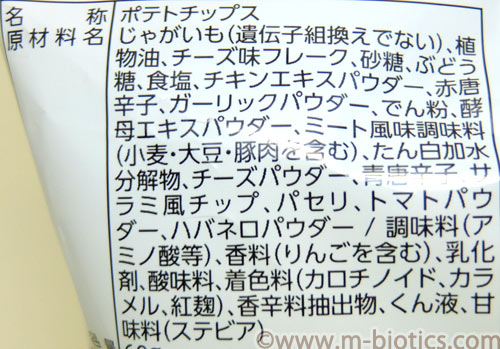 名 称 ポテトチップス
原材料名 じゃがいも(遺伝子組換えでない)、植
物油、チーズ味フレーク、砂糖、ぶどう
糖、食塩、チキンエキスパウダー、赤唐
辛子、ガーリックパウダー、でん粉、酵
母エキスパウダー、ミート風味調味料
(小麦・大豆・豚肉を含む)、たん白加水
分解物、チーズパウダー、青唐辛子、サ
ラミ風チップ、パセリ、トマトパウ
ダー、ハバネロパウダー / 調味料(ア
ミノ酸等)、香料(りんごを含む)、乳化
剤、酸味料、着色料(カロチノイド、カラ
メル、紅麹)、香辛料抽出物、くん液、甘
味料(ステビア)
©www.m-biotics.com